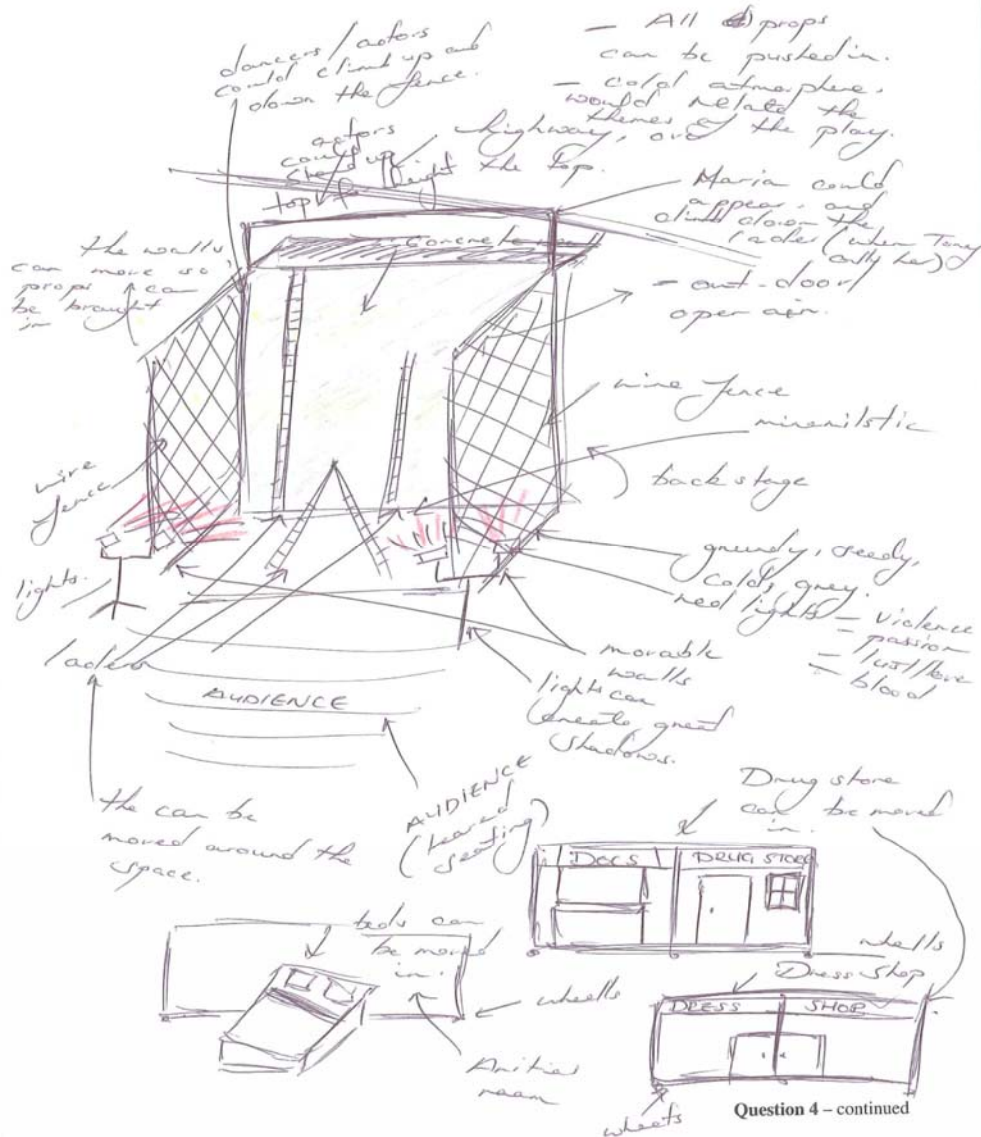 dancers / actors
could climb up and
down the fence.
- All props
can be pushed in.
- cold atmosphere,
would relate the
themes of the play.
actors
could
stand up
top for height
highway, over
the top.
Maria could
appear, and
climb down the
lader (when Toney
calls her)
the walls
can move so
props can
be brought
in
Concrete
- out-door/
open air.
wire fence
minemilstic
back stage
wire
fence
lights.
grundy, seedy,
colds, grey.
red lights - violence
- passion
- lust/love
- blood
laders
movable
walls
lights can
create great
shadows.
AUDIENCE
AUDIENCE
(teared
seating)
the can be
moved around the
space.
Drug store
can be moved
in.
DOCS
DRUG STORE
wheells
beds can
be moved
in.
wheells
Dress Shop
DRESS SHOP
Anities
room
wheels
Question 4 – continued